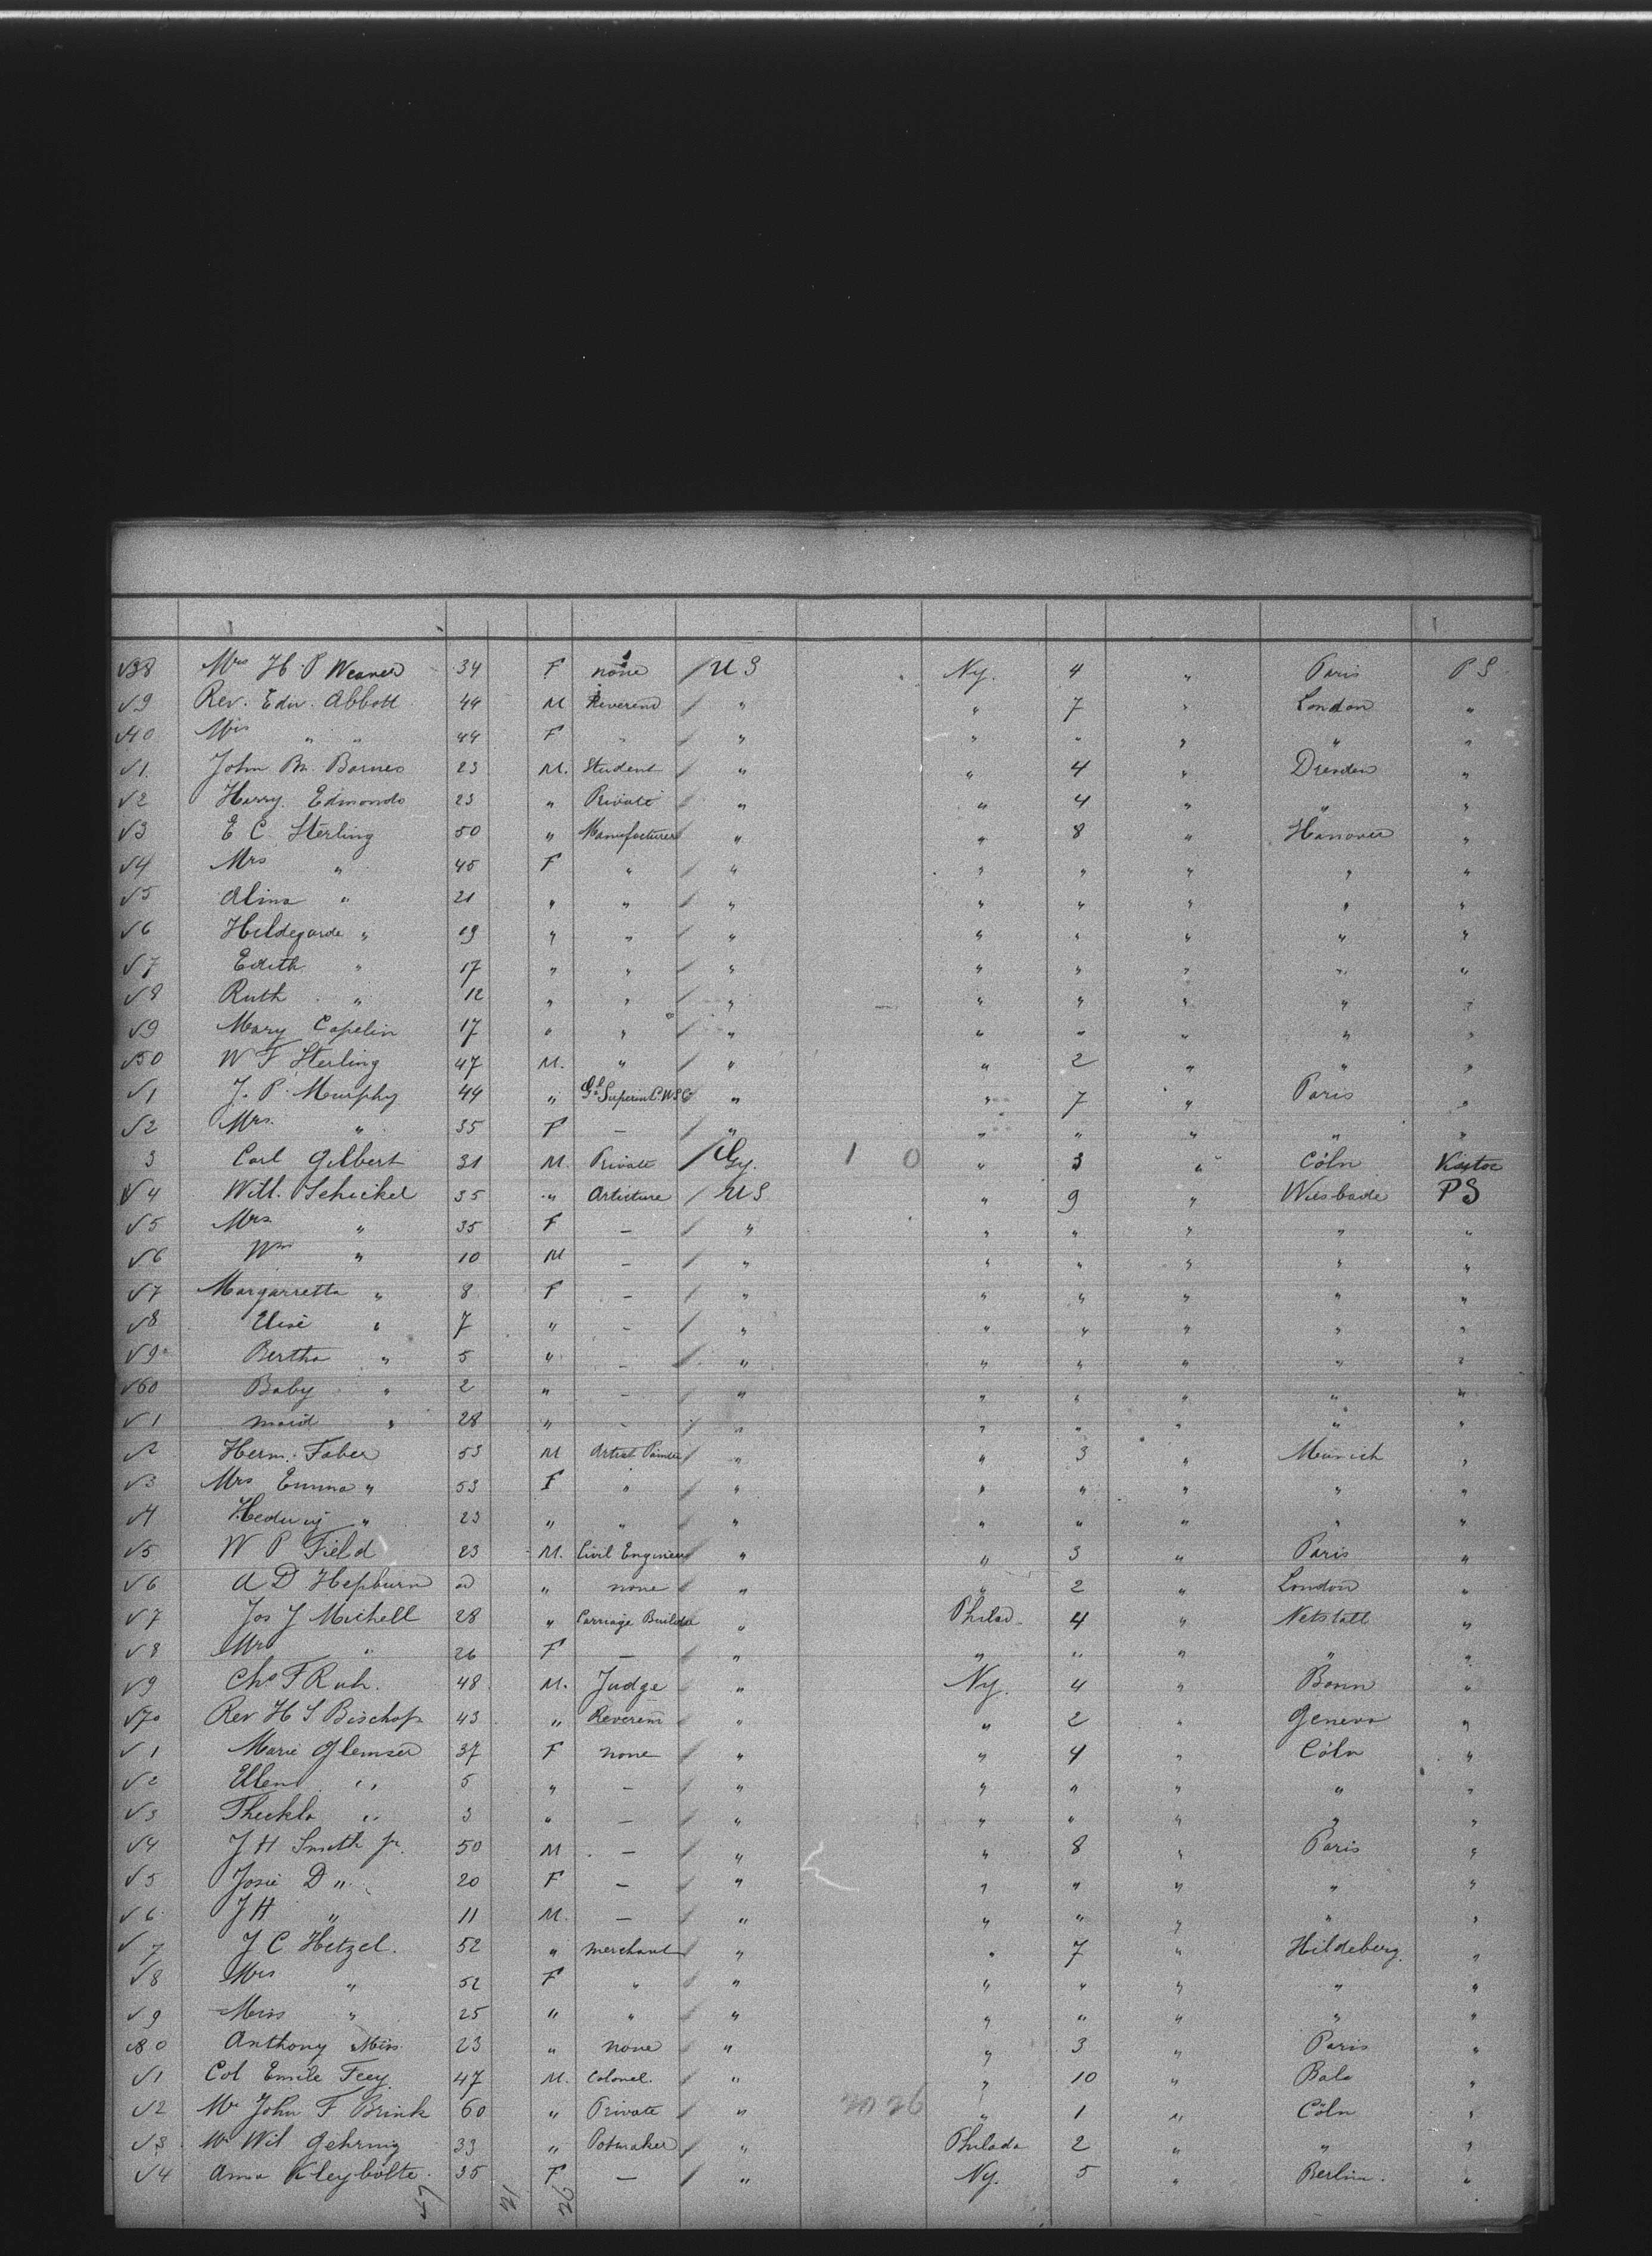 √38 Mrs H. P Weaver 34 F none / U S Ny. 4 " Paris P S
√9 Rev. Edw. Abbott 44 M Reverend / " " 7 " London "
√40 Mrs " " 44 F " / " " " " " "
√1 John M. Barnes 23 M. Student / " " 4 " Dresden "
√2 Harry Edmonds 23 " Private / " " 4 " " "
√3 E C. Sterling 50 " Manufacturer / " " 8 " Hanover "
√4 Mrs " 45 F " / " " " " " "
√5 Alina " 21 " " / " " " " " "
√6 Hildegarde " 19 " " / " " " " " "
√7 Edith " 17 " " / " " " " " "
√8 Ruth " 12 " " / " " " " " "
√9 Mary Capelin 17 " " / " " " " " "
√50 W F Sterling 47 M. " / " " 2 " " "
√1 J. P. Murphy 44 " " " 7 " Paris "
√2 Mrs. " 35 F – / " " " " " "
3 Carl Gilbert 31 M. Private / Gy. 1 0 " 3 " Cöln Visitor
√4 Will. Schickel 35 " Articture / U S " 9 " Wiesbade PS
√5 Mrs " 35 F – / " " " " " "
√6 Wm " 10 M – / " " " " " "
√7 Margarretta " 8 F – / " " " " " "
√8 Elise " 7 " – / " " " " " "
√9 Bertha " 5 " – / " " " " " "
√60 Baby " 2 " – / " " " " " "
√1 maid " 28 " – / " " " " " "
√2 Herm. Faber 53 M Artist Painter / " " 3 " Munich "
√3 Mrs Emma " 53 F " / " " " " " "
√4 Hedwig " 23 " " / " " " " " "
√5 W P Field 23 M. Civil Engineer " " 3 " Paris "
√6 A D Hepburn " none / " " 2 " London "
√7 Jos J Michell 28 " Carriage Builder " Philad. 4 " Netstall "
√8 Mrs " 26 F – / " " " " " "
√9 Chs F Ruh. 48 M. Judge / " Ny. 4 " Bonn "
√70 Rev H S Bischop 43 " Reverem / " " 2 " Geneva "
√1 Marie Glemser 37 F none / " " 4 " Cöln "
√2 Ellen " 5 " – / " " " " " "
√3 Theckla " 3 " – / " " " " " "
√4 J H Smith jr. 50 M – / " " 8 " Paris "
√5 Josie D " 20 F – / " " " " " "
√6 J H " 11 M. – / " " " " " "
√7 J C Hetzel. 52 " merchant / " " 7 " Hildeberg. "
√8 Mrs " 52 F " / " " " " " "
√9 Miss " 25 " " / " " " " " "
√80 Anthony Miss 23 " none / " " 3 " Paris "
√1 Col Emile Frey 47 M. Colonel. / " " 10 " Bale "
√2 Mr John F Brink 60 " Private / " " 1 " Cöln "
√3 Mr Wil Gehring 33 " Potmaker / " Philada 2 " " "
√4 Anna Kleybolte. 35 F – / " Ny. 5 " Berlin. "